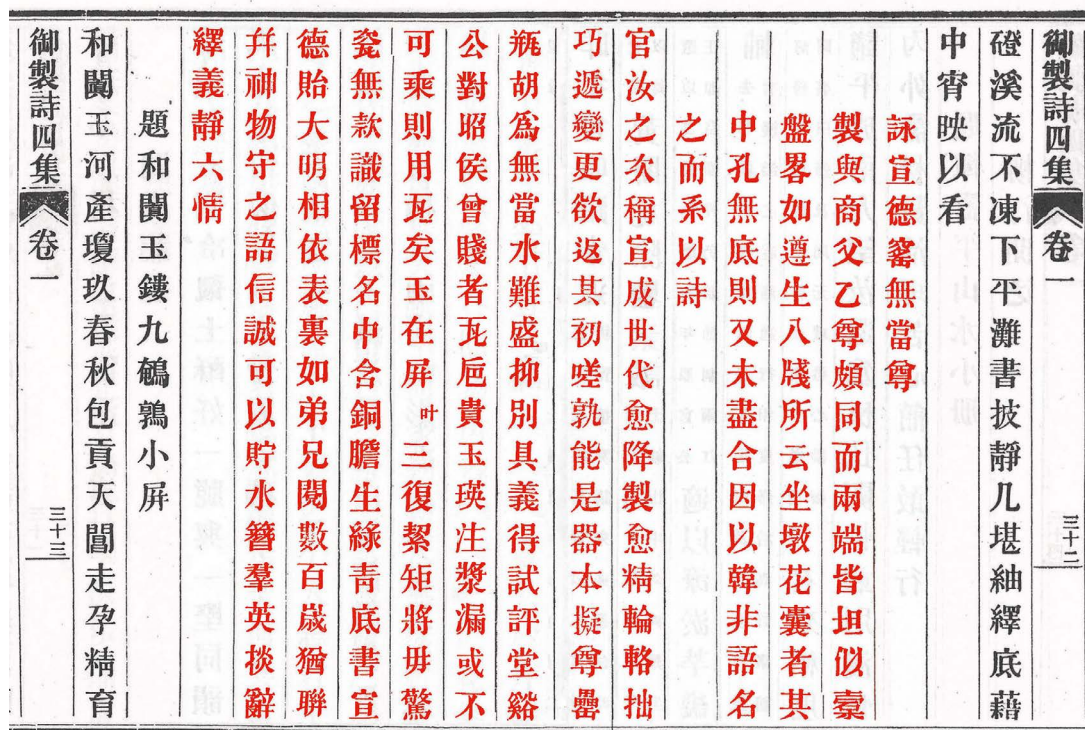 御製詩四集 卷一 三十二
磴溪流不凍下平灘書披靜几堪紬繹底藉
中宵映以看
詠宣德窰無當尊
製與商父乙尊頗同而兩端皆坦似橐
盤畧如遵生八牋所云坐墩花囊者其
中孔無底則又未盡合因以韓非語名
之而系以詩
官汝之次稱宣成世代愈降製愈精輪輅拙
巧遞變更欲返其初嗟孰能是器本擬尊罍
瓶胡爲無當水難盛抑別具義得試評堂谿
公對昭侯曾賤者瓦巵貴玉瑛注漿漏或不
可乘則用瓦矣玉在屏叶三復絜矩將毋驚
瓷無款識留標名中含銅膽生綠靑底書宣
德貽大明相依表裏如弟兄閱數百歲猶聯
幷神物守之語信誠可以貯水簪羣英掞辭
繹義靜六情
題和闐玉鏤九鵪鶉小屏
和闐玉河產瓊玖春秋包貢大闓走孕精育
御製詩四集 卷一 三十三